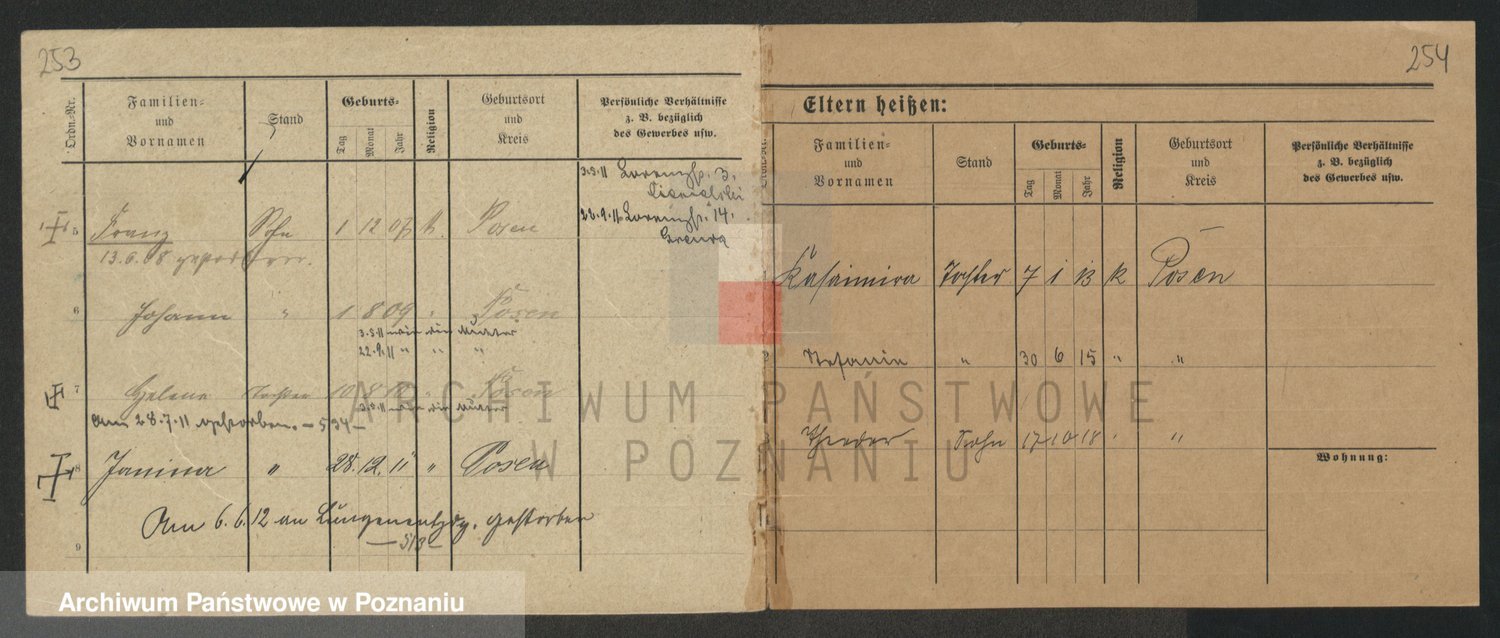 253
Ordn.-Nr.
Familien- und Vornamen
Stand
Geburts-
Tag
Monat
Jahr
Religion
Geburtsort und Kreis
Persönliche Verhältnisse
z. B. bezüglich
des Gewerbes usw.
3.5.11 Lorenzstr. 3.
22.9.11 Lorenzstr. 14.
5 Franz Sohn 1 12 07 k. Posen
13.6.08 gestorben.
6 Johann " 1 8 09 " Posen
3.5.11 wie die Mutter
22.9.11 " " "
7 Helene Tochter 10 8 10 " Posen
3.5.11 wie die Mutter
Am 28.7.11 gestorben. – 594 –
8 Janina " 28. 12. 11 " Posen
Am 6.6.12 an Lungenentzdg. gestorben
– 513 –
9
254
Eltern heißen:
Familien- und Vornamen
Stand
Geburts-
Tag
Monat
Jahr
Religion
Geburtsort und Kreis
Persönliche Verhältnisse
z. B. bezüglich
des Gewerbes usw.
Kasimira Tochter 7 1 13 k Posen
Stefanie " 30 6 15 " "
Theodor Sohn 17 10 18 " "
Wohnung:
ARCHIWUM PAŃSTWOWE
W POZNANIU
Archiwum Państwowe w Poznaniu